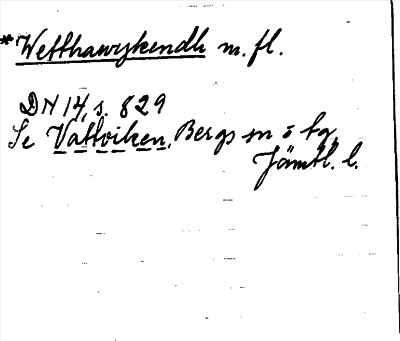 *Wetthawykendh m. fl.
DN 14, s. 829
Se Vattviken, Bergs sn o tg,
Jämtl. l.